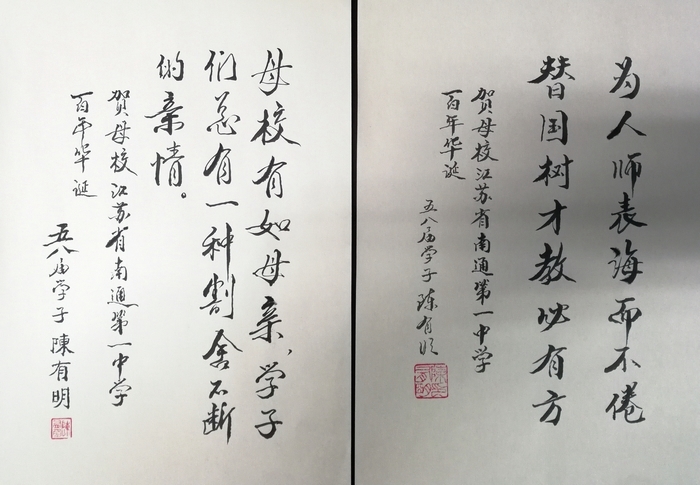 母校有如母亲，学子
们总有一种割舍不断
的亲情。
贺母校江苏省南通第一中学
百年华诞
五八届学子陳有明
为人师表诲而不倦
替国树才教必有方
贺母校江苏省南通第一中学
百年华诞
五八届学子陈有明